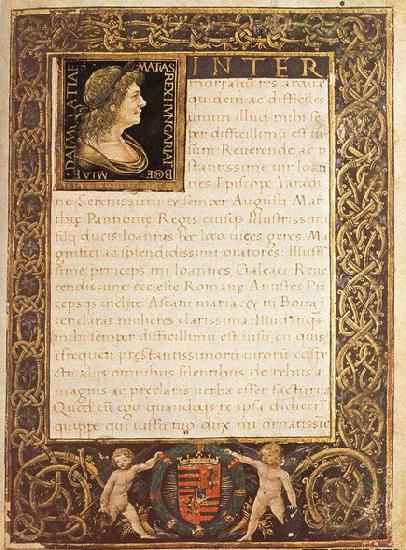 MATIAS REX HVNGARIAE BOE MIAE DALMATIAE
INTER
mortalis res ardua
quidem ac difficiles
unum illud mihi se
per difficillimum est ui
sum: Reuerende ac p
stantissime uir Ioan
nes Episcope Uaradi
ne Serenissimi & semper Augusti Mat
thie Pannonie Regis eiusq Illustrissimi
filij ducis Ioannis hoc loco uices geres: Ma
gnifici ac splendidissimi oratores: Illustr
sime princeps mi Ioannes Galeaz Reue
rendissime ecclesie Romane Antistes Pri
cepsq inclyte Ascani maria: & tu Bona
ter claras mulieres clarissima: Illud inq
mihi semper difficillimum est uisu, eu quis
i frequeti prestantissimoru uiroru cospe
ctu alijs omnibus silentibus de rebus
magnis ac preclaris uerba esset facturus
Quod cu ego quandoq re ipsa didicerī
quippe qui iussu tuo dux mi ornatissie